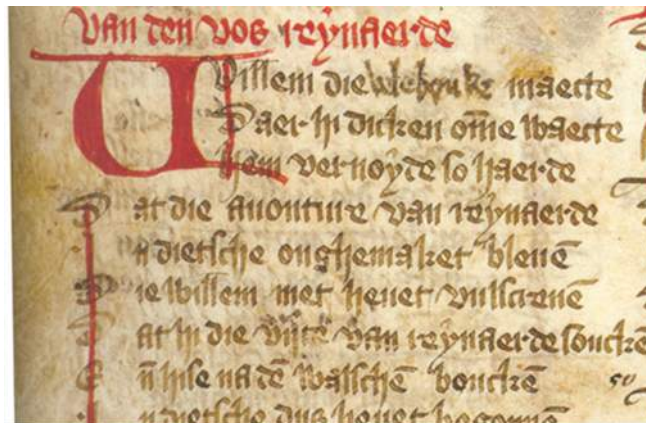 van den vos reynaerde
Willem die vele bouke maecte
Daer hi dicken om̄e waecte
hem vernoyde so haerde
Dat die auonture van reynaerde
n dietsche onghemaket bleuē
Die willem niet heuet vulscreuē
Dat hi die vijte van reynaerde soucken
Eñ hise na dē walschē bouckē
n dietsche dus heuet begonnē